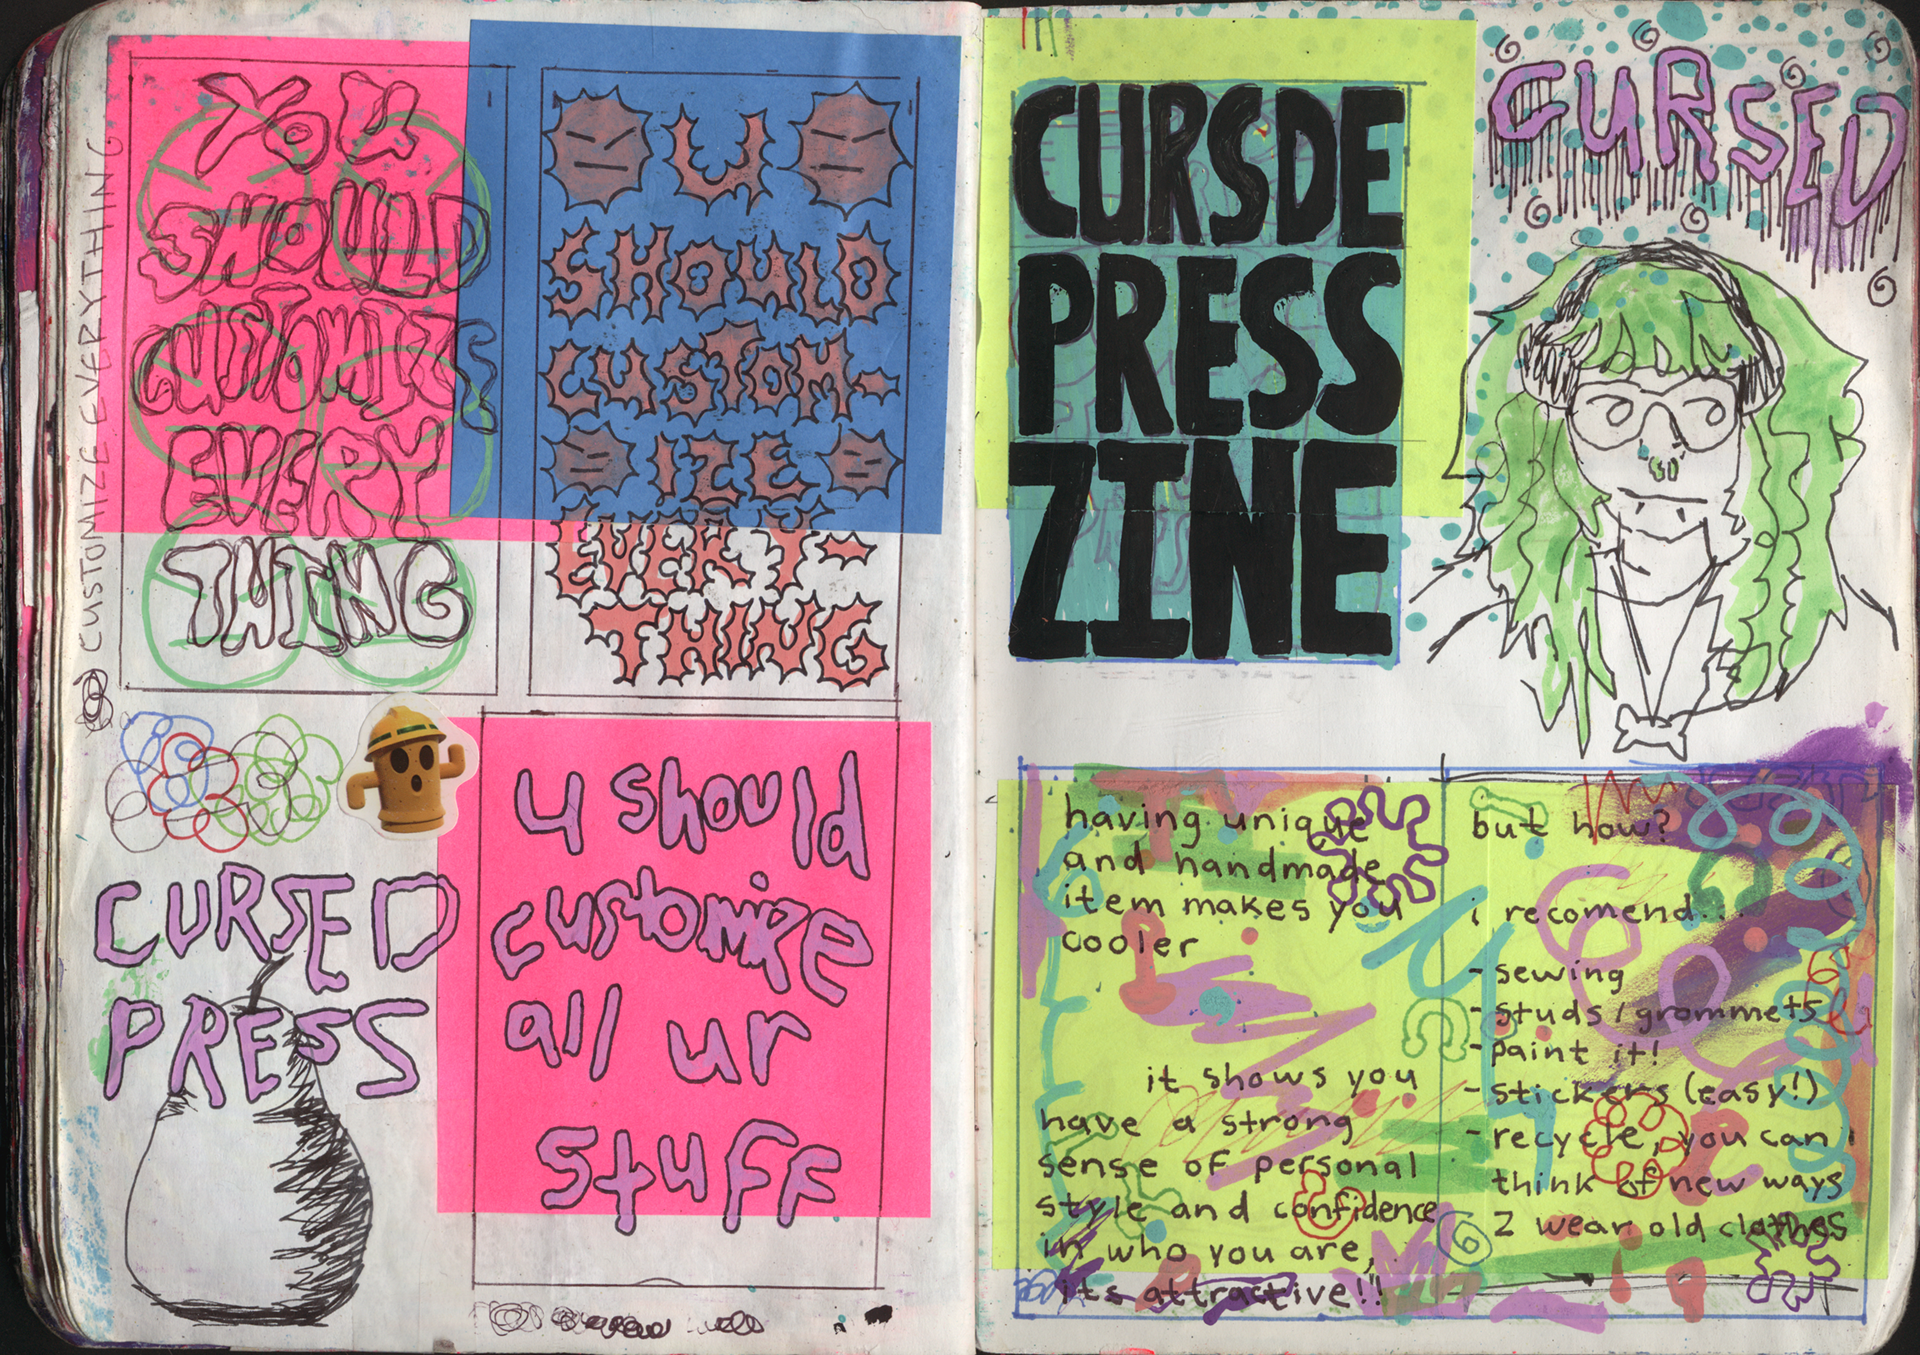 CUSTOMIZE EVERYTHING
YOU
SHOULD
CUSTOMIZE
EVERY
THING
U
SHOULD
CUSTOM-
IZE
EVERY-
THING
CURSED
PRESS
u should
customize
all ur
stuff
CURSDE
PRESS
ZINE
CURSED
having unique
and handmade
item makes you
cooler
it shows you
have a strong
sense of personal
style and confidence
in who you are,
its attractive!!
but how?
i recomend...
- sewing
- studs/grommets
- paint it!
- stickers (easy!)
- recycle, you can
think of new ways
2 wear old clothes